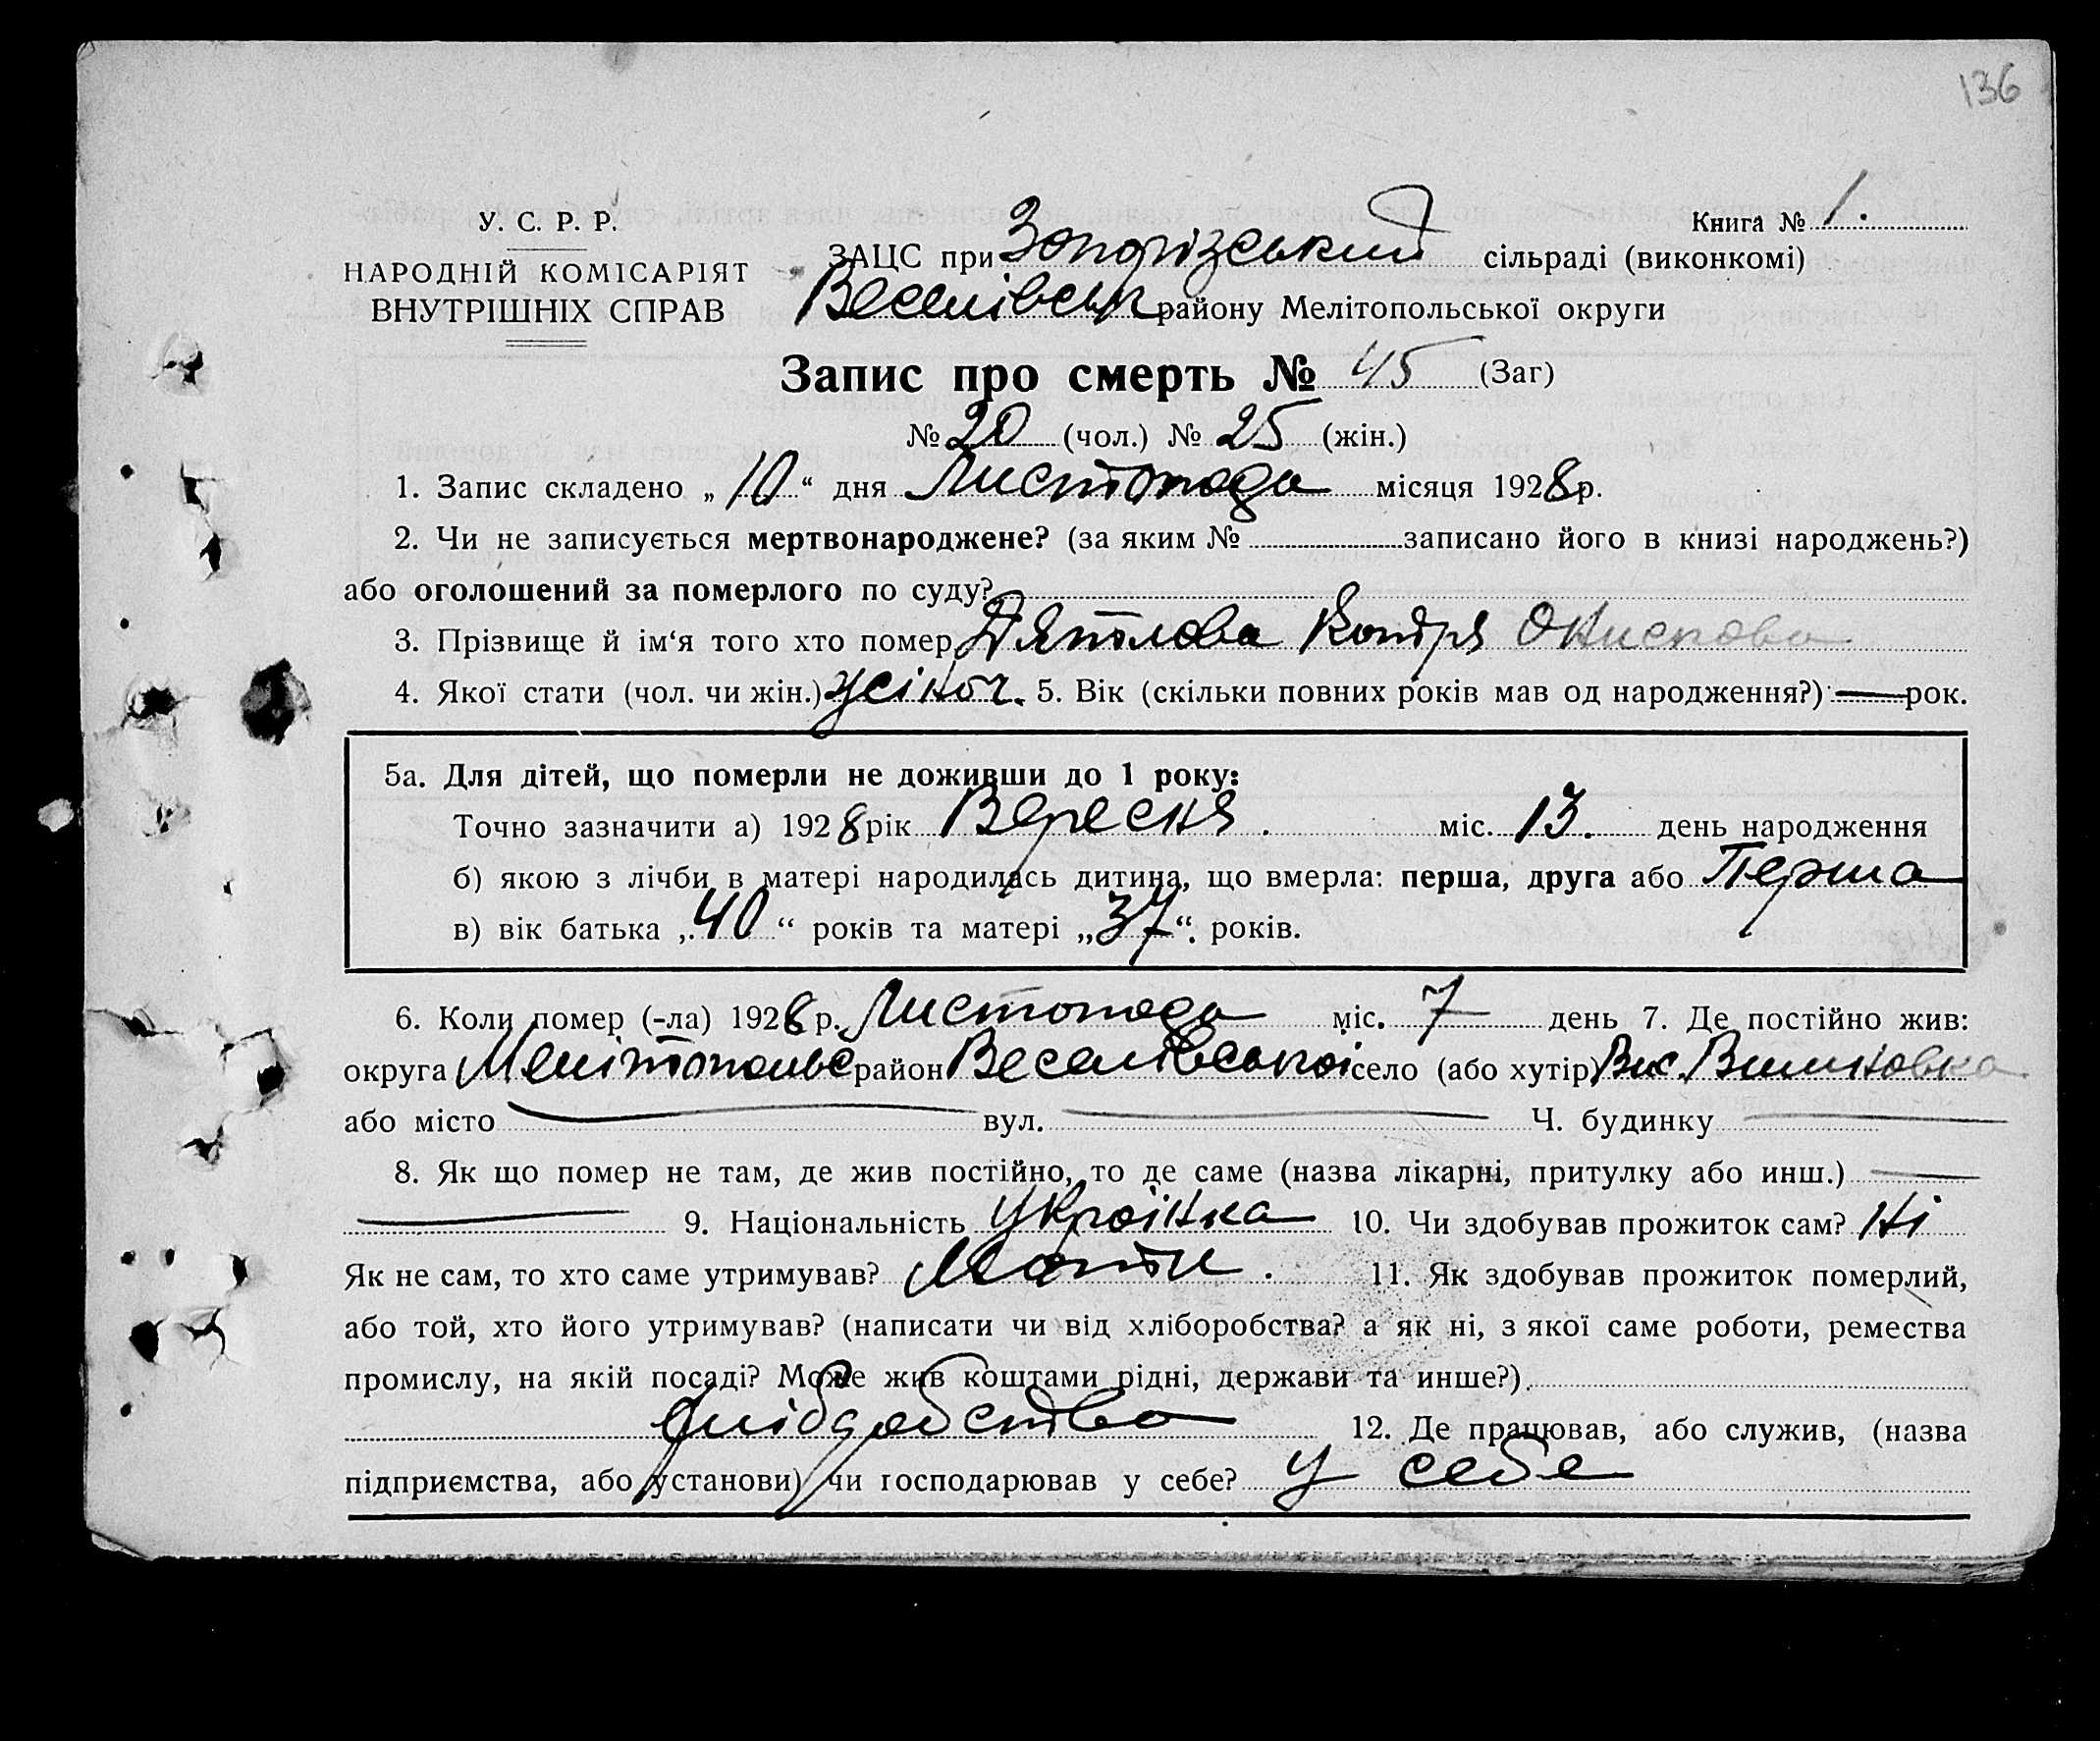 136
У. С. Р. Р.
НАРОДНІЙ КОМІСАРІЯТ
ВНУТРІШНІХ СПРАВ
Книга № 1.
ЗАЦС при Запорізський сільраді (виконкомі)
Веселівськ району Мелітопольської округи
Запис про смерть № 45 (Заг)
№ 20 (чол.) № 25 (жін.)
1. Запис складено „ 10 “ дня Листопада місяця 1928 р.
2. Чи не записується мертвонароджене? (за яким № записано його в книзі народжень?)
або оголошений за померлого по суду?
3. Прізвище й ім‘я того хто помер Дятлова Котря
4. Якої стати (чол. чи жін.) жіноч. 5. Вік (скільки повних років мав од народження?) — рок.
5а. Для дітей, що померли не доживши до 1 року:
Точно зазначити а) 1928 рік Вересня . міс. 13. день народження
б) якою з лічби в матері народилась дитина, що вмерла: перша, друга або Перша
в) вік батька „ 40 “ років та матері „ 37 “. років.
6. Коли помер (-ла) 1928 р. Листопада міс. 7 день 7. Де постійно жив:
округа Мелітопольс район Веселівської село (або хутір) Вис. Вишновка
або місто — вул. — Ч. будинку —
8. Як що помер не там, де жив постійно, то де саме (назва лікарні, притулку або инш.) —
— 9. Національність Українка 10. Чи здобував прожиток сам? Ні
Як не сам, то хто саме утримував? Мати . 11. Як здобував прожиток померлий,
або той, хто його утримував? (написати чи від хліборобства? а як ні, з якої саме роботи, ремества
промислу, на якій посаді? Може жив коштами рідні, держави та инше?)
12. Де працював, або служив, (назва
підприємства, або установи) чи господарював у себе? У себе